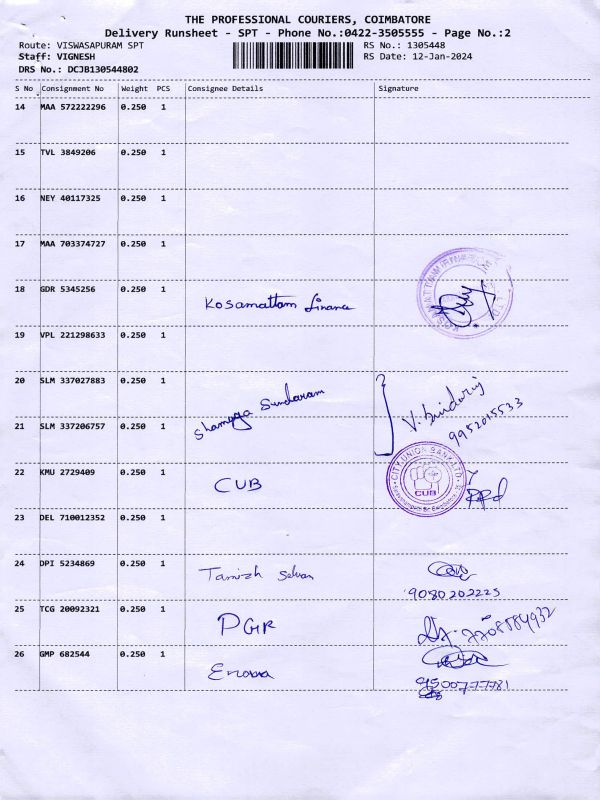 THE PROFESSIONAL COURIERS, COIMBATORE
Delivery Runsheet - SPT - Phone No.:0422-3505555 - Page No.:2
Route: VISWASAPURAM SPT RS No.: 1305448
Staff: VIGNESH RS Date: 12-Jan-2024
DRS No.: DCJB130544802
S No Consignment No Weight PCS Consignee Details Signature
14 MAA 572222296 0.250 1
15 TVL 3849206 0.250 1
16 NEY 40117325 0.250 1
17 MAA 703374727 0.250 1
18 GDR 5345256 0.250 1 Kosamattam finance
19 VPL 221298633 0.250 1
20 SLM 337027883 0.250 1 Sundaram
9952015533
21 SLM 337206757 0.250 1
CITY UNION BANK LTD
CUB
22 KMU 2729409 0.250 1 CUB
23 DEL 710012352 0.250 1
24 DPI 5234869 0.250 1 Tamizh Selvan
9080202225
25 TCG 20092321 0.250 1 PGR
26 GMP 682544 0.250 1
9500777781